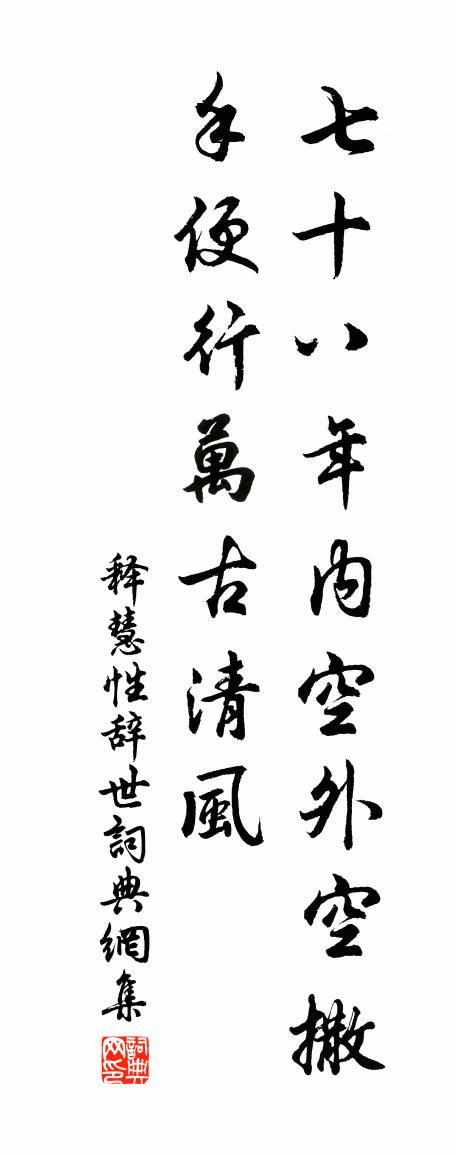 七十八年内空外空撒
手便行萬古清風
释慧性辞世詞典網集
詞典网印